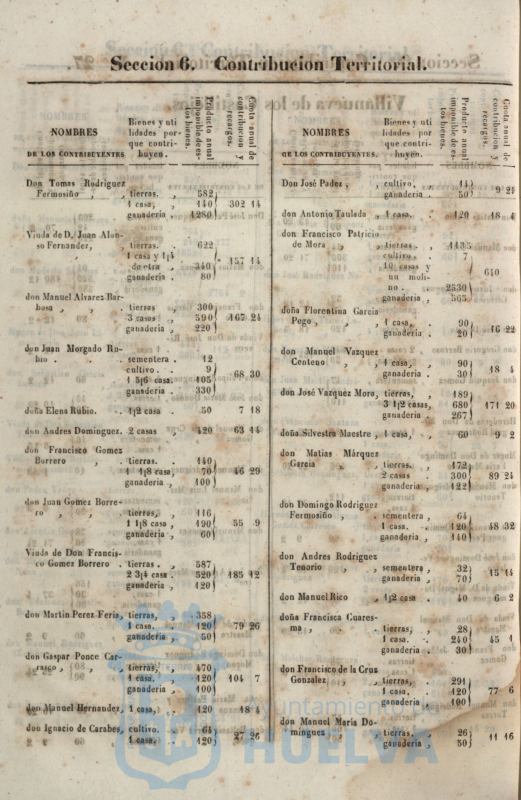 Seccion 6. Contribucion Territorial.
NOMBRES
DE LOS CONTRIBUYENTES.
Bienes y uti
lidades por-
que contri-
buyen.
Producto anual
imponible de es-
tos bienes.
Cuota anual de
contribucion y
recargos.
Don Tomas Rodriguez
Fermosiño , , tierras. , 582
1 casa, , 140 302 14
ganaderia . 1280
Viuda de D. Juan Alon-
so Fernander, tierras. . 622
1 casa y 1|4
de otra , 340 157 14
ganaderia . 80
don Manuel Alvarez Bar-
bosa , , tierras , 300
3 casas , 590 167 24
ganaderia , 220
don Juan Morgado Ru-
bio . . . sementera . 12
cultivo. . 9
1 5|6 casa. 105 68 30
ganaderia . 330
doña Elena Rubio. . 1|2 casa . 50 7 18
don Andres Dominguez. 2 casas , 420 63 14
don Francisco Gomez
Borrero , . tierras. . 140
1 1|8 casa, 70 46 29
ganaderia , 100
don Juan Gomez Borre-
ro , , . tierras, , 116
1 1|8 casa , 190 55 9
ganaderia , 60
Viuda de Don Francis-
co Gomez Borrero . tierras . , 587
2 3|4 casa . 520 185 12
ganaderia , 120
don Martin Perez Feria, tierras, , 358
1 casa. , 120 79 26
ganaderia , 50
don Gaspar Ponce Car-
rasco , , , tierras, , 470
1 casa, , 120 104 7
ganaderia , 100
don Manuel Hernandez, 1 casa, , 120 18 4
don Ignacio de Carabes, cultivo. , 64
1 casa, , 120 27 26
NOMBRES
DE LOS CONTRIBUYENTES.
Bienes y uti
lidades por-
que contri-
buyen.
Producto anual
imponible de es-
tos bienes.
Cuota anual de
contribucion y
recargos.
Don José Padez , , cultivo, , 11
ganaderia . 50 9 24
don Antonio Taulada , 1 casa. . 120 18 4
don Francisco Patricio
de Mora , , tierras . , 1435
cultivo . , 7
10 casas y
un moli-
no . . 2330 640
ganaderia , 565
doña Florentina Garcia
Pego , , , 1 casa, . 90
ganaderia . 20 16 22
don Manuel Vazquez
Centeno , , 1 casa, , 90
ganaderia . 30 18 4
don José Vazquez Moro, tierras, , 189
3 1|2 casas, 680 171 20
ganaderia , 267
doña Silvestra Maestre , 1 casa, , 60 9 2
don Matias Márquez
Garcia , , tierras. , 172
2 casas . 300 89 24
ganaderia , 122
don Domingo Rodriguez
Fermosiño , . sementera , 64
1 casa. . 120 48 32
ganaderia , 140
don Andres Rodriguez
Tenorio , , sementera , 32
ganaderia , 70 15 14
don Manuel Rico , 1|2 casa . 40 6 2
doña Francisca Cuares-
ma , . . tierras, , 28
1 casa. , 240 45 1
ganaderia . 30
don Francisco de la Cruz
Gonzalez , , tierras, , 291
1 casa. , 120 77 6
ganaderia , 100
don Manuel Maria Do-
minguez , , tierras, , 26
ganaderia , 50 11 16
Ayuntamiento de
HUELVA